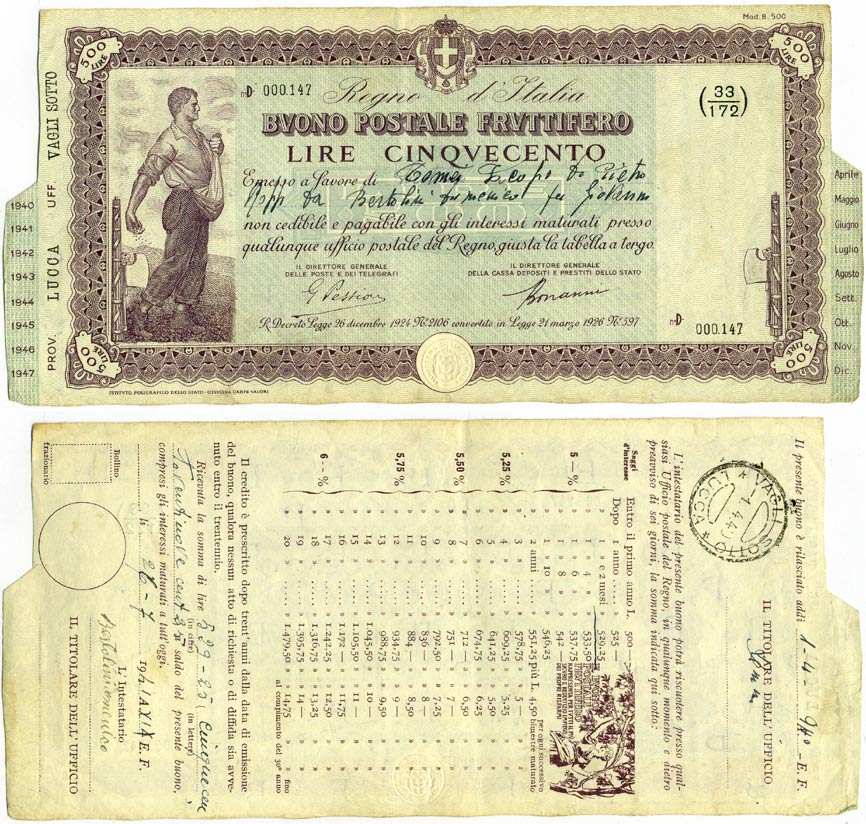 Mod. B. 500
500 LIRE
500 LIRE
N. D 000.147
Regno d'Italia
(33/172)
BVONO POSTALE FRVTTIFERO
LIRE CINQVECENTO
Emesso a favore di Jacopo di Pietro
Bertolini Domenico fu Giovanni
non cedibile e pagabile con gli interessi maturati presso
qualunque ufficio postale del Regno, giusta la tabella a tergo.
IL DIRETTORE GENERALE
DELLE POSTE E DEI TELEGRAFI
IL DIRETTORE GENERALE
DELLA CASSA DEPOSITI E PRESTITI DELLO STATO
G Pession
Bonanni
R. Decreto Legge 26 dicembre 1924 N.º 2106 convertito in Legge 21 marzo 1926 N.º 597
N. D 000.147
500 LIRE
500 LIRE
ISTITUTO POLIGRAFICO DELLO STATO - OFFICINA CARTE VALORI
PROV. LUCCA UFF VAGLI SOTTO
1940
1941
1942
1943
1944
1945
1946
1947
Aprile
Maggio
Giugno
Luglio
Agosto
Sett.
Ott.
Nov.
Dic.
Il presente buono è rilasciato addì 1-4-940 - E. F.
IL TITOLARE DELL'UFFICIO
VAGLI SOTTO
1.4.40
* LUCCA *
L'intestatario del presente buono potrà riscuotere presso qual-
siasi Ufficio postale del Regno, in qualunque momento e dietro
preavviso di sei giorni, la somma indicata qui sotto:
Saggi
d'interesse
5 — %
5,25 %
5,50 %
5,75 %
6 - %
Entro il primo anno L. 500 —
Dopo 1 anno ..... » 525 —
» 1 » e 2 mesi » 529,25
» 1 » 4 » » 533,50
» 1 » 6 » » 537,75
» 1 » 8 » » 542 —
» 1 » 10 » » 546,25
» 2 anni ..... » 551,25 più L. 4,50 per ogni successivo bimestre maturato
» 3 » ..... » 578,75 » » 4,75
» 4 » ..... » 609,25 » » 5,25
» 5 » ..... » 641,25
» 6 » ..... » 674,75 » » 6,25
» 7 » ..... » 712 — » » 6,50
» 8 » ..... » 751 —
» 9 » ..... » 792,50 » » 7,25
» 10 » ..... » 836 — » » 8 —
» 11 » ..... » 884 — » » 8,50
» 12 » ..... » 934,75 » » 9 —
» 13 » ..... » 988,75 » » 9,50
» 14 » ..... » 1.045,50 » » 10 —
» 15 » ..... » 1.105,50 » » 11 —
» 16 » ..... » 1.172 — » » 11,75
» 17 » ..... » 1.242,25 » » 12,50
» 18 » ..... » 1.316,75 » » 13,25
» 19 » ..... » 1.395,75 » » 14 —
» 20 » ..... » 1.479,50 » » 14,75 fino al compimento del 30° anno
Il credito è prescritto dopo trent'anni dalla data di emissione
del buono, qualora nessun atto di richiesta o di diffida sia avve-
nuto entro il trentennio.
Ricevuta la somma di lire 529-25 cinquecen
(in cifre) (in lettere)
toventinove cent 25 saldo del presente buono,
compresi gli interessi maturati a tutt'oggi.
lì 26-7 1941 AXIX E. F.
L'Intestatario
IL TITOLARE DELL'UFFICIO
Bollino
frazionario